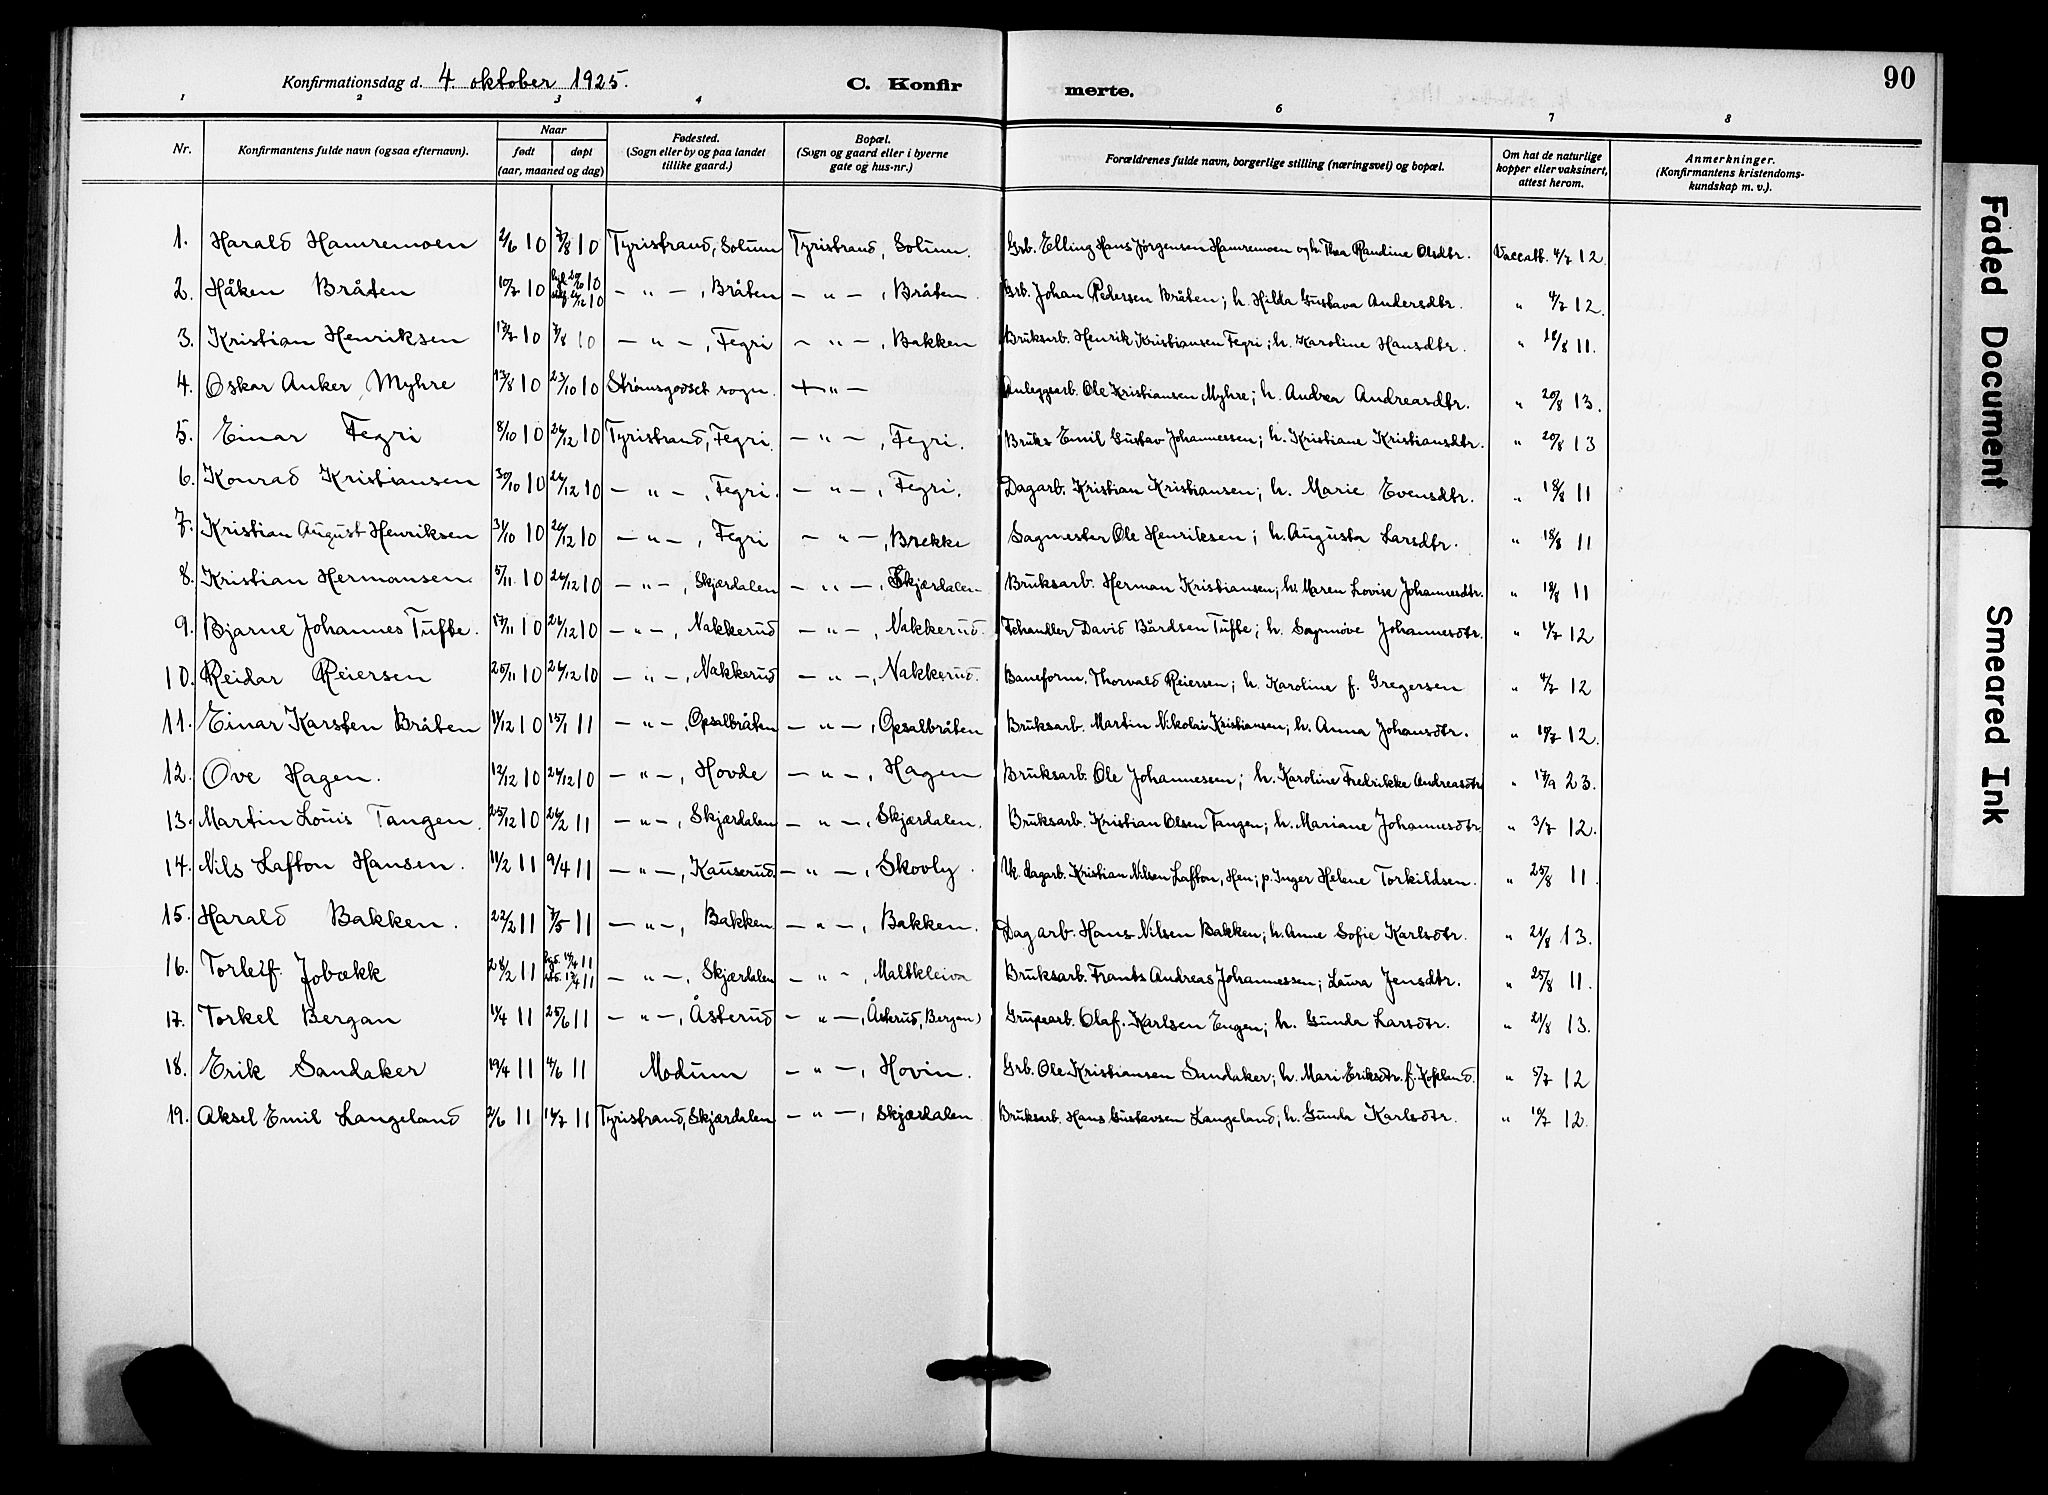 90
Konfirmationsdag d. 4. oktober 1925.
C. Konfirmerte.
1 2 3 4 6 7 8
Nr. Konfirmantens fulde navn (ogsaa efternavn). Naar født døpt (aar, maaned og dag) Fødested. (Sogn eller by og paa landet tillike gaard.) Bopæl. (Sogn og gaard eller i byerne gate og hus-nr.) Forældrenes fulde navn, borgerlige stilling (næringsvei) og bopæl. Om hat de naturlige kopper eller vaksinert, attest herom. Anmerkninger. (Konfirmantens kristendomskundskap m. v.).
1. Harald Hamremoen 2/6 10 7/8 10 Tyristrand, Solum Tyristrand, Solum. Grb. Elling Hans Jørgensen Hamremoen og h. Thea Randine Olsdtr. Vaccatt. 4/7 12.
2. Håken Bråten 10/7 10 10 10 — " —, Bråten — " —, Bråten. Grb. Johan Pedersen Bråten; h. Hilda Gustava Andersdtr. " 4/7 12.
3. Kristian Henriksen 17/7 10 7/8 10 — " —, Fegri — " —, Bakken Bruksarb. Henrik Kristiansen Fegri; h. Karoline Hansdtr. " 18/8 11.
4. Oskar Anker Myhre 13/8 10 23/10 10 Strømsgodset sogn. — " — Anleggsarb. Ole Kristiansen Myhre; h. Andrea Andreasdtr. " 20/8 13.
5. Einar Fegri 8/10 10 26/12 10 Tyristrand, Fegri. — " —, Fegri. Bruks Emil Gustav Johannessen; h. Kristiane Kristiansdtr. " 20/8 13
6. Konrad Kristiansen 30/10 10 26/12 10 — " —, Fegri. — " —, Fegri. Dagarb. Kristian Kristiansen; h. Marie Evensdtr. " 18/8 11
7. Kristian August Henriksen 31/10 10 26/12 10 — " —, Fegri — " —, Brekke Sagmester Ole Henriksen; h. Augusta Larsdtr. " 18/8 11
8. Kristian Hermansen 5/11 10 26/12 10 — " —, Skjærdalen — " —, Skjærdalen Bruksarb. Herman Kristiansen; h. Maren Lovise Johannesdtr. " 18/8 11
9. Bjarne Johannes Tufte. 17/11 10 26/12 10 — " —, Nakkerud — " —, Nakkerud. David Bårdsen Tufte; h. Johannesdtr. " 4/7 12
10. Reidar Reiersen 25/11 10 26/12 10 — " —, Nakkerud — " —, Nakkerud. Baneform. Thorvald Reiersen; h. Karoline f. Gregersen " 4/7 12
11. Einar Karsten Bråten 11/12 10 15/1 11 — " —, Opsalbråten — " —, Opsalbråten Bruksarb. Martin Nikolai Kristiansen; h. Anna Johansdtr. " 10/7 12.
12. Ove Hagen. 12/12 10 26/12 10 — " —, Hovde — " —, Hagen Bruksarb. Ole Johannessen; h. Karoline Fredrikke Andreasdtr " 17/9 23.
13. Martin Louis Tangen. 25/12 10 26/2 11 — " —, Skjærdalen — " —, Skjærdalen. Bruksarb. Kristian Olsen Tangen; h. Mariane Johannesdtr " 3/7 12.
14. Nils Lafton Hansen. 11/2 11 9/4 11 — " —, Kauserud. — " —, Skovly. Uk. dagarb. Kristian Nilsen Lafton, Hen; p. Inger Helene Torkildsen. " 25/8 11.
15. Harald Bakken. 22/2 11 7/5 11 — " —, Bakken — " —, Bakken. Dagarb. Hans Nilsen Bakken; h. Anne Sofie Karlsdtr. " 21/8 13.
16. Torleif Jobækk 28/2 11 11 11 — " —, Skjærdalen — " —, Maltkleiva Bruksarb. Frants Andreas Johannessen; Laura Jensdtr. " 25/8 11.
17. Torkel Bergan 11/4 11 25/6 11 — " —, Åsterud — " —, Åsterud, Bergan) Grupearb. Olaf Karlsen Engen; h. Gunda Larsdtr. " 21/8 13.
18. Erik Sandaker 19/4 11 4/6 11 Modum — " —, Hovin. Grb. Ole Kristiansen Sandaker; h. Mari Eriksdtr. f. Kopland. " 5/7 12
19. Aksel Emil Langeland 2/6 11 16/7 11 Tyristrand, Skjærdalen — " —, Skjærdalen Bruksarb. Hans Gustavsen Langeland; h. Gunda Karlsdtr. " 10/7 12.
Faded Document
Smeared Ink